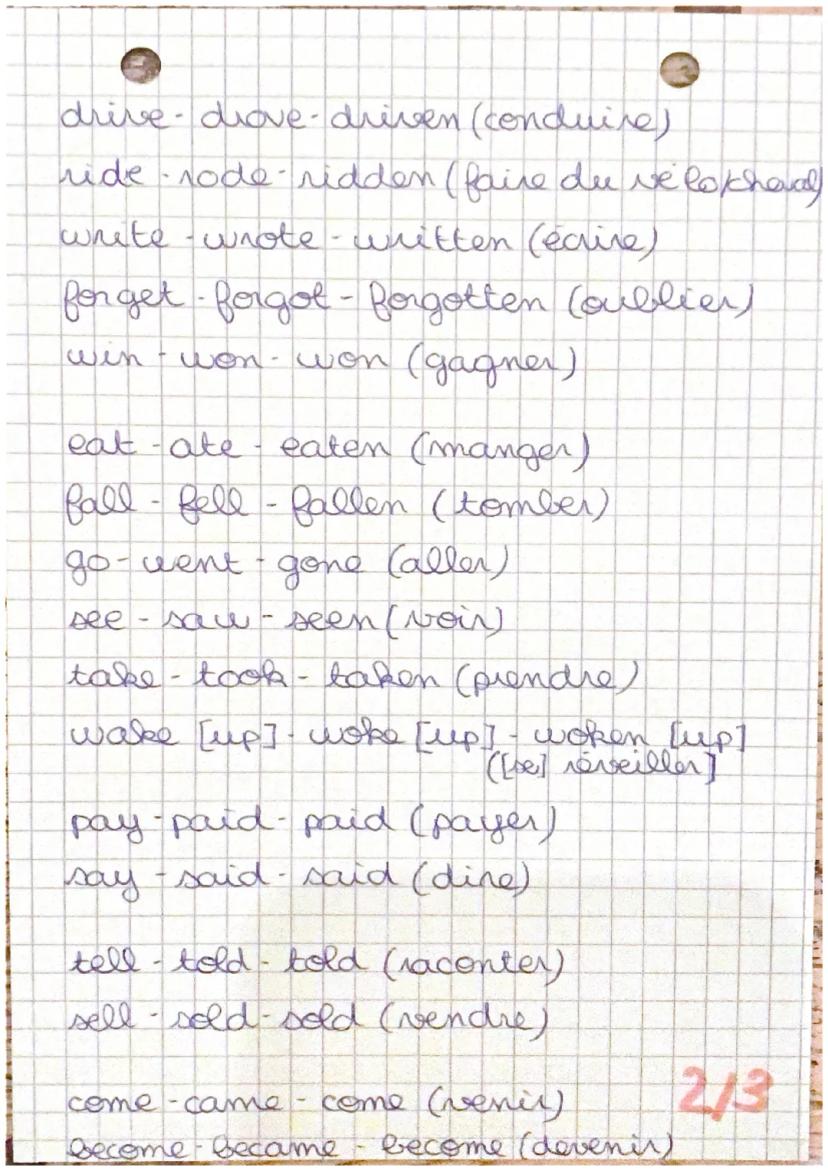 drive - drove - driven (conduire)
ride - rode - ridden (faire du vélo/cheval)
write - wrote - written (écrire)
forget - forgot - forgotten (oublier)
win - won - won (gagner)
eat - ate - eaten (manger)
fall - fell - fallen (tomber)
go - went - gone (aller)
see - saw - seen (voir)
take - took - taken (prendre)
wake [up] - woke [up] - woken [up]
([se] réveiller]
pay - paid - paid (payer)
say - said - said (dire)
tell - told - told (raconter)
sell - sold - sold (vendre)
come - came - come (venir)
2/3
become - became - become (devenir)